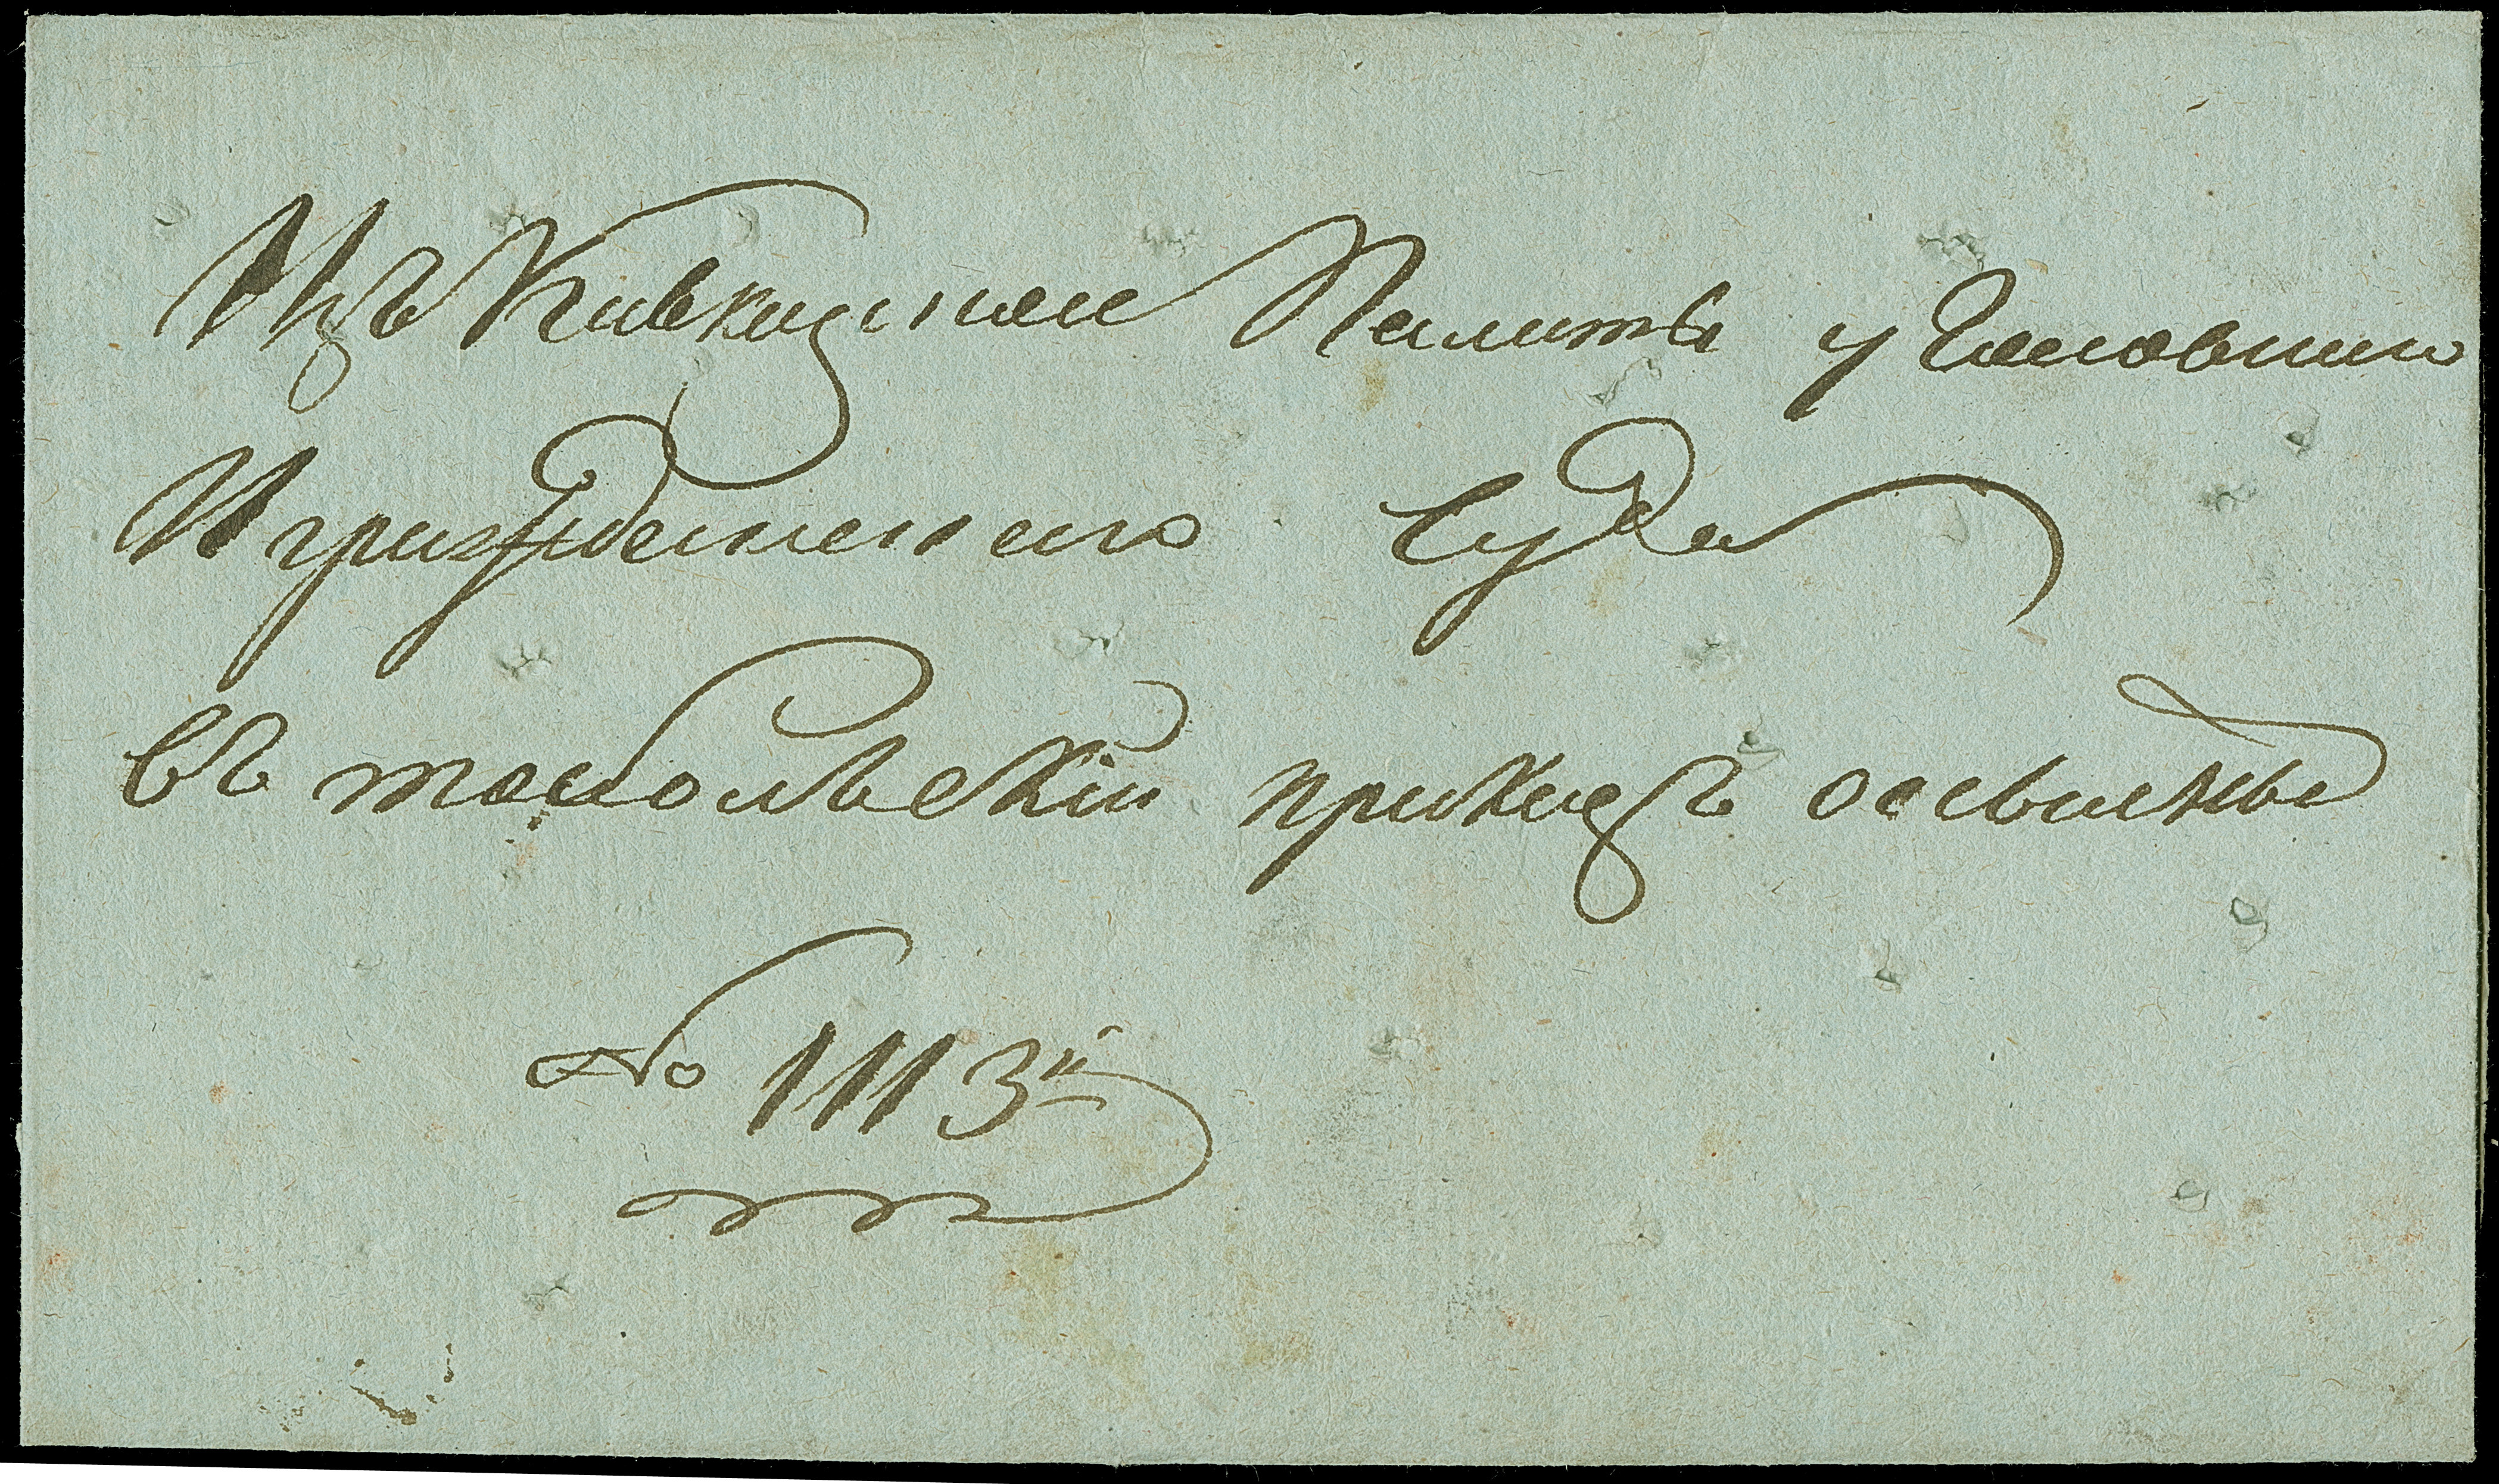 Изъ Кавказской Палаты уголовнаго
И гражданскаго Суда
въ тобольский приказъ о ссыльныхъ
№ 1113й